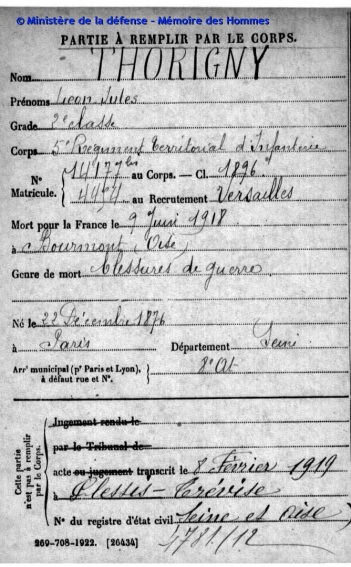 © Ministère de la défense - Mémoire des Hommes
PARTIE À REMPLIR PAR LE CORPS.
Nom THORIGNY
Prénoms Léon Jules
Grade 2e classe
Corps 5e Régiment Territorial d'Infanterie
N° Matricule. { 14177bis au Corps. — Cl. 1896
au Recrutement Versailles
Mort pour la France le 9 Juin 1918
à (Oise)
Genre de mort blessures de guerre
Né le 22 Décembre 1876
à Paris Département Seine
Arrt municipal (pr Paris et Lyon), à défaut rue et N°. } 8e Art
Cette partie n'est pas à remplir par le Corps.
Jugement rendu le
par le Tribunal de
acte ou jugement transcrit le 8 Février 1919
à Plessis-Trévise
N° du registre d'état civil Seine et Oise
4781/12
269-708-1922. [26434]